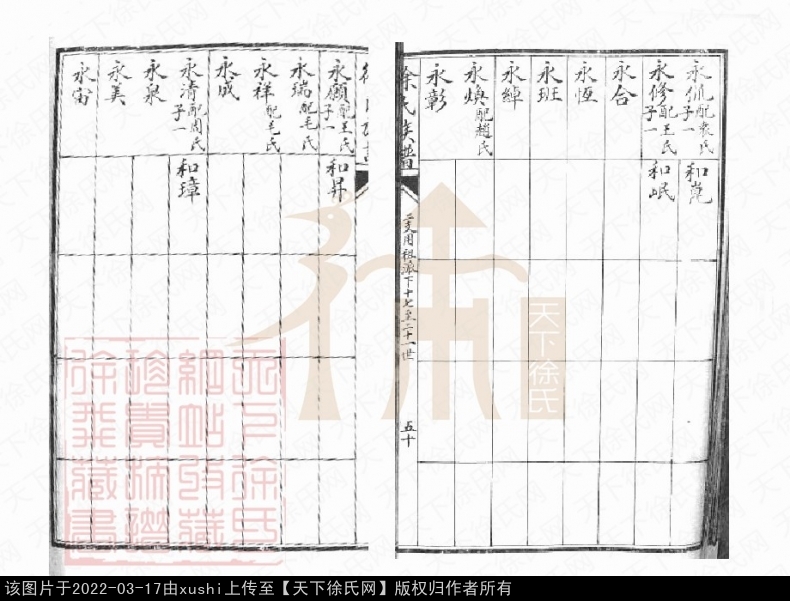 永侃配袁氏子一
和崑
永修配王氏子一
和岷
永合
永恆
永班
永綽
永煥配趙氏
永彰
徐氏族譜
二支用祖派下十七至二十一世
五十
永願配王氏子一
和昇
永瑞配毛氏
永祥配毛氏
永成
永清配周氏子一
和璋
永泉
永美
永宙
天下徐氏
该图片于2022-03-17由xushi上传至【天下徐氏网】版权归作者所有